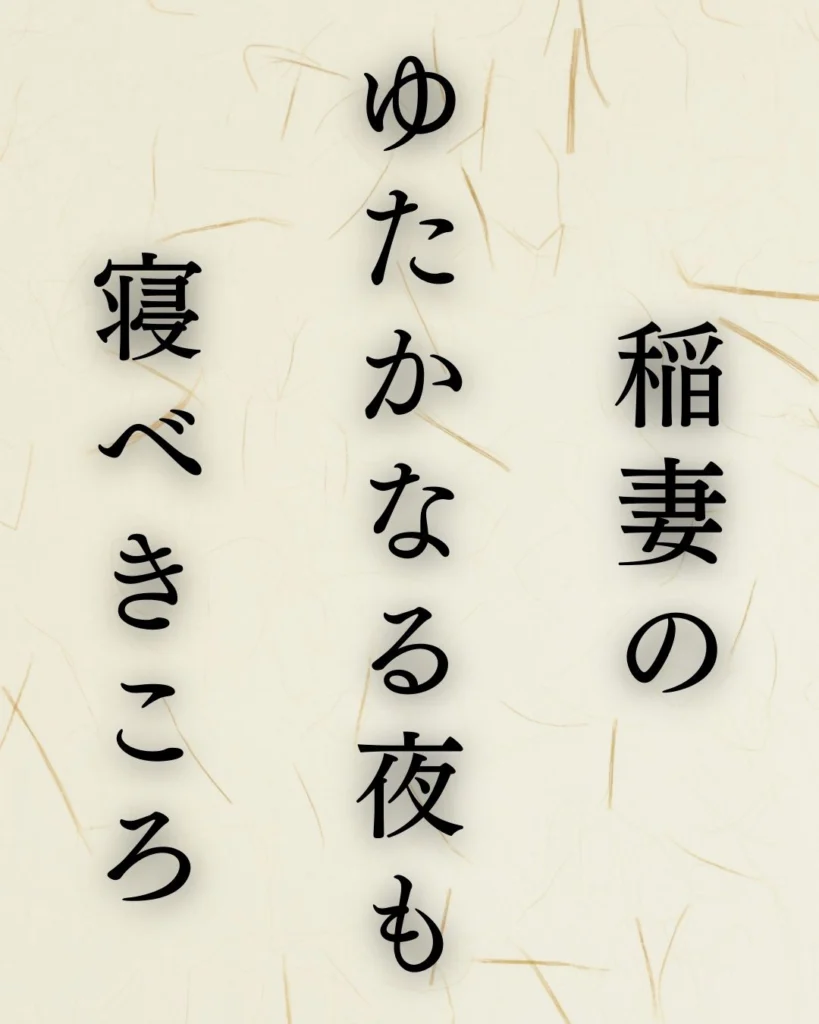 稲妻の
ゆたかなる夜も
寝べきころ